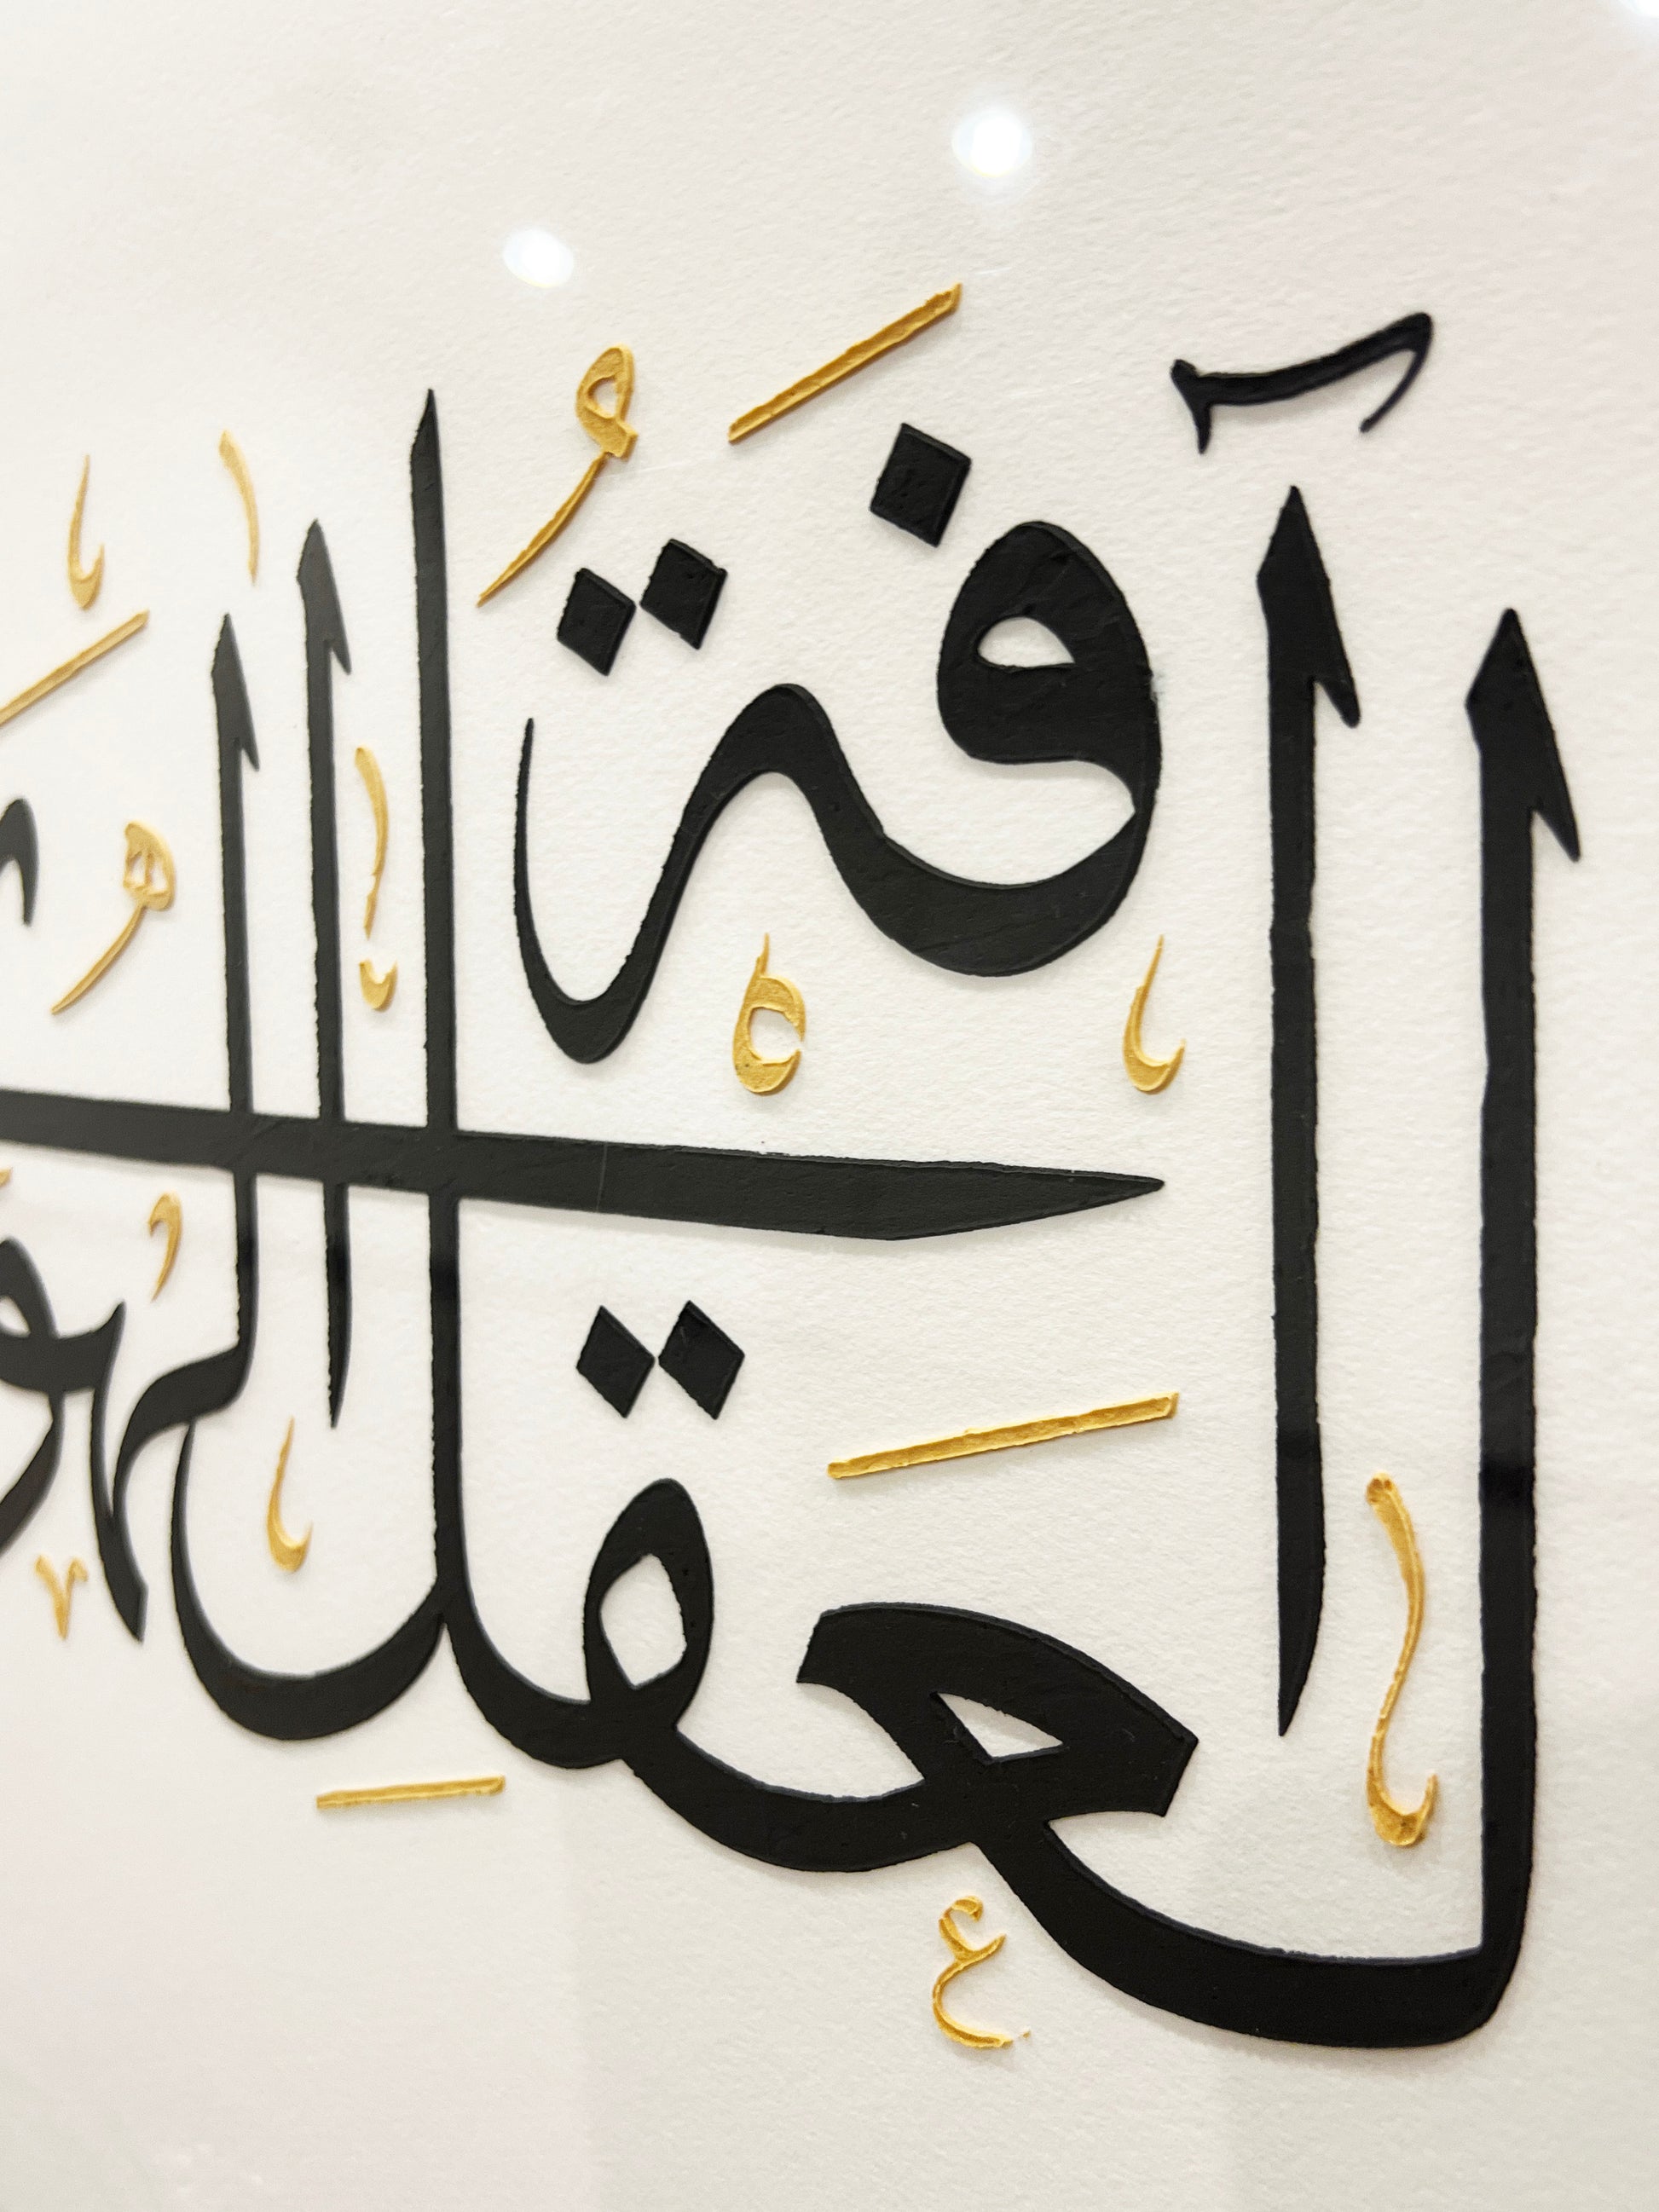 آفَةُ العَقلِ الهَوى